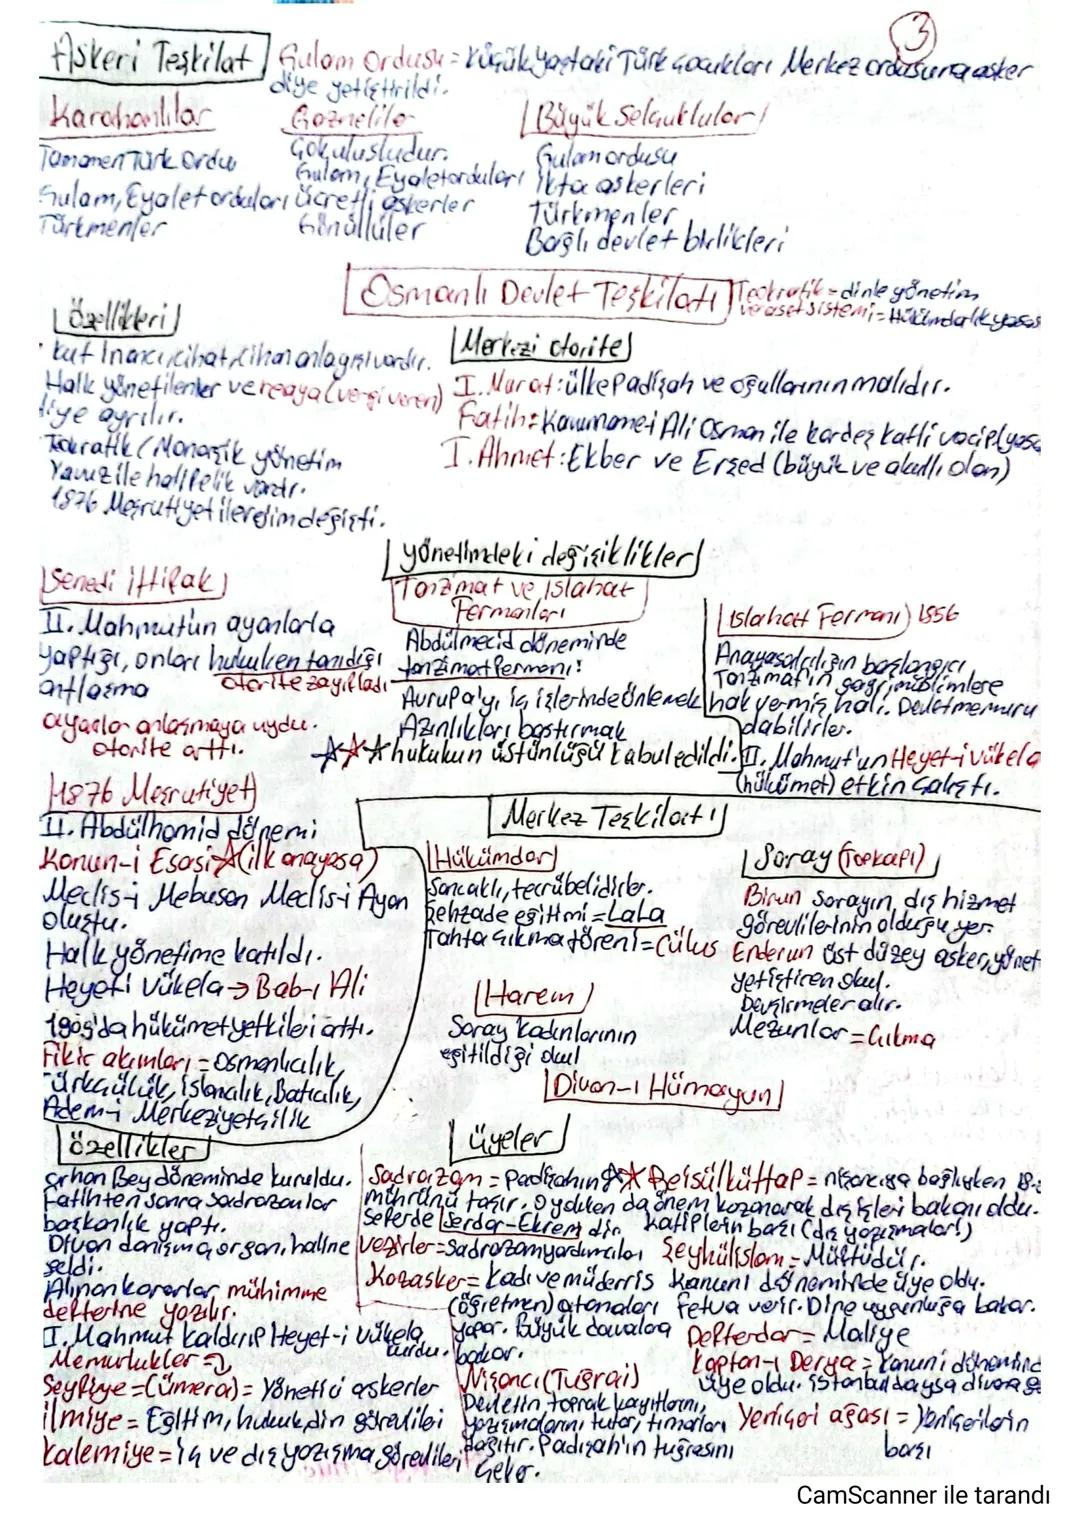 3
Askeri Teşkilat
Gulam Ordusu = Küçük yaştaki Türk çocukları Merkez ordusuna asker
diye yetiştirildi.
Karahanlılar
Tamamen Türk Ordu
Gulam, Eyalet orduları
Türkmenler
Gazneliler
Çok ulusludur.
Gulam, Eyalet orduları
ücretli askerler
Gönüllüler
Büyük Selçuklular
Gulam ordusu
İkta askerleri
Türkmenler
Bağlı devlet birlikleri
Osmanlı Devlet Teşkilatı
Teokratik = dinle yönetim
veraset sistemi = Hükümdarlık yasası
özellikleri
kut inancı, cihat, cihan anlayışı vardır.
Halk yönetilenler ve reaya (vergi veren)
diye ayrılır.
Teokratik / Monarşik yönetim
Yavuz ile halifelik vardır.
1876 Meşrutiyet ile rejim değişti.
Merkezi otorite
I. Murat: ülke Padişah ve oğullarının malıdır.
Fatih: Kanunname-i Ali Osman ile kardeş katli vacip (yasa
I. Ahmet: Ekber ve Erşed (büyük ve akıllı olan)
yönetimdeki değişiklikler
Senedi ittifak
II. Mahmut'un ayanlarla
yaptığı, onları hukuken tanıdığı
antlaşma
otorite zayıfladı
ayanlar anlaşmaya uydu.
otorite arttı.
Tanzimat ve Islahat
Fermanları
Abdülmecid döneminde
tanzimat fermanı!
Avrupa'yı iç işlerinde önlemek
Azınlıkları bastırmak
hukukun üstünlüğü kabul edildi.
Islahat Fermanı 1856
Anayasalcılığın başlangıcı
Tanzimat'ın gayrimüslimlere
hak vermiş hali. Devlet memuru
olabilirler.
II. Mahmut'un Heyet-i vükela
(hükümet) etkin çalıştı.
1876 Meşrutiyet
II. Abdülhamid dönemi
Kanun-i Esasi (ilk anayasa)
Meclis-i Mebusan Meclis-i Ayan
oluştu.
Halk yönetime katıldı.
Heyeti vükela → Bab-ı Ali
1909'da hükümet yetkileri arttı.
Fikir akımları = Osmanlıcılık,
Türkçülük, islamcılık, Batıcılık,
Adem-i Merkeziyetçilik
Merkez Teşkilatı
Hükümdar
Sancaklı, tecrübelidirler.
Şehzade eğitmi = Lala
Tahta çıkma töreni = Cülus
Harem
Saray kadınlarının
eğitildiği okul
Saray (Topkapı)
Birun sarayın, dış hizmet
görevlilerinin olduğu yer.
Enderun üst düzey asker, yönet
yetiştiren okul.
Devşirmeler alır.
Mezunlar = Çıkma
Divan-ı Hümayun
özellikler
Orhan Bey döneminde kuruldu.
Fatihten sonra sadrazamlar
başkanlık yaptı.
Divan danışma organı haline
geldi.
Alınan kararlar mühimme
defterine yazılır.
I. Mahmut kaldırıp Heyet-i vükela
kurdu.
Memurluklar =
Seyfiye = (Ümera) = Yönetici askerler
ilmiye = Eğitim, hukuk, din görevlileri
Kalemiye = iç ve dış yazışma görevlileri
üyeler
Sadrazam = Padişahın
mührünü taşır. Oydeken
Seferde Serdar-Ekrem dir.
vezirler = Sadrazam yardımcıları
Kazasker = Kadı ve müderris
(öğretmen) atamaları
yapar. Büyük davalara
bakar.
Nişancı (Tuğrai)
Devletin toprak kayıtlarını,
yazışmalarını tutar, tımarları
dağıtır. Padişah'ın tuğrasını
çeker.
Reisülküttap = nişancıya bağlıyken 18.
da önem kazanarak dış işleri bakanı oldu.
Katiplerin başı (dış yazışmalar!)
Şeyhülislam = Müftüdür.
Kanuni döneminde üye oldu.
Fetva verir. Dine uygunluğa bakar.
Defterdar = Maliye
Kaptan-ı Derya = Kanuni dönemind
üye oldu. istanbuldaysa divana ge
Yeniçeri ağası = Yeniçerilerin
başı
CamScanner ile tarandı